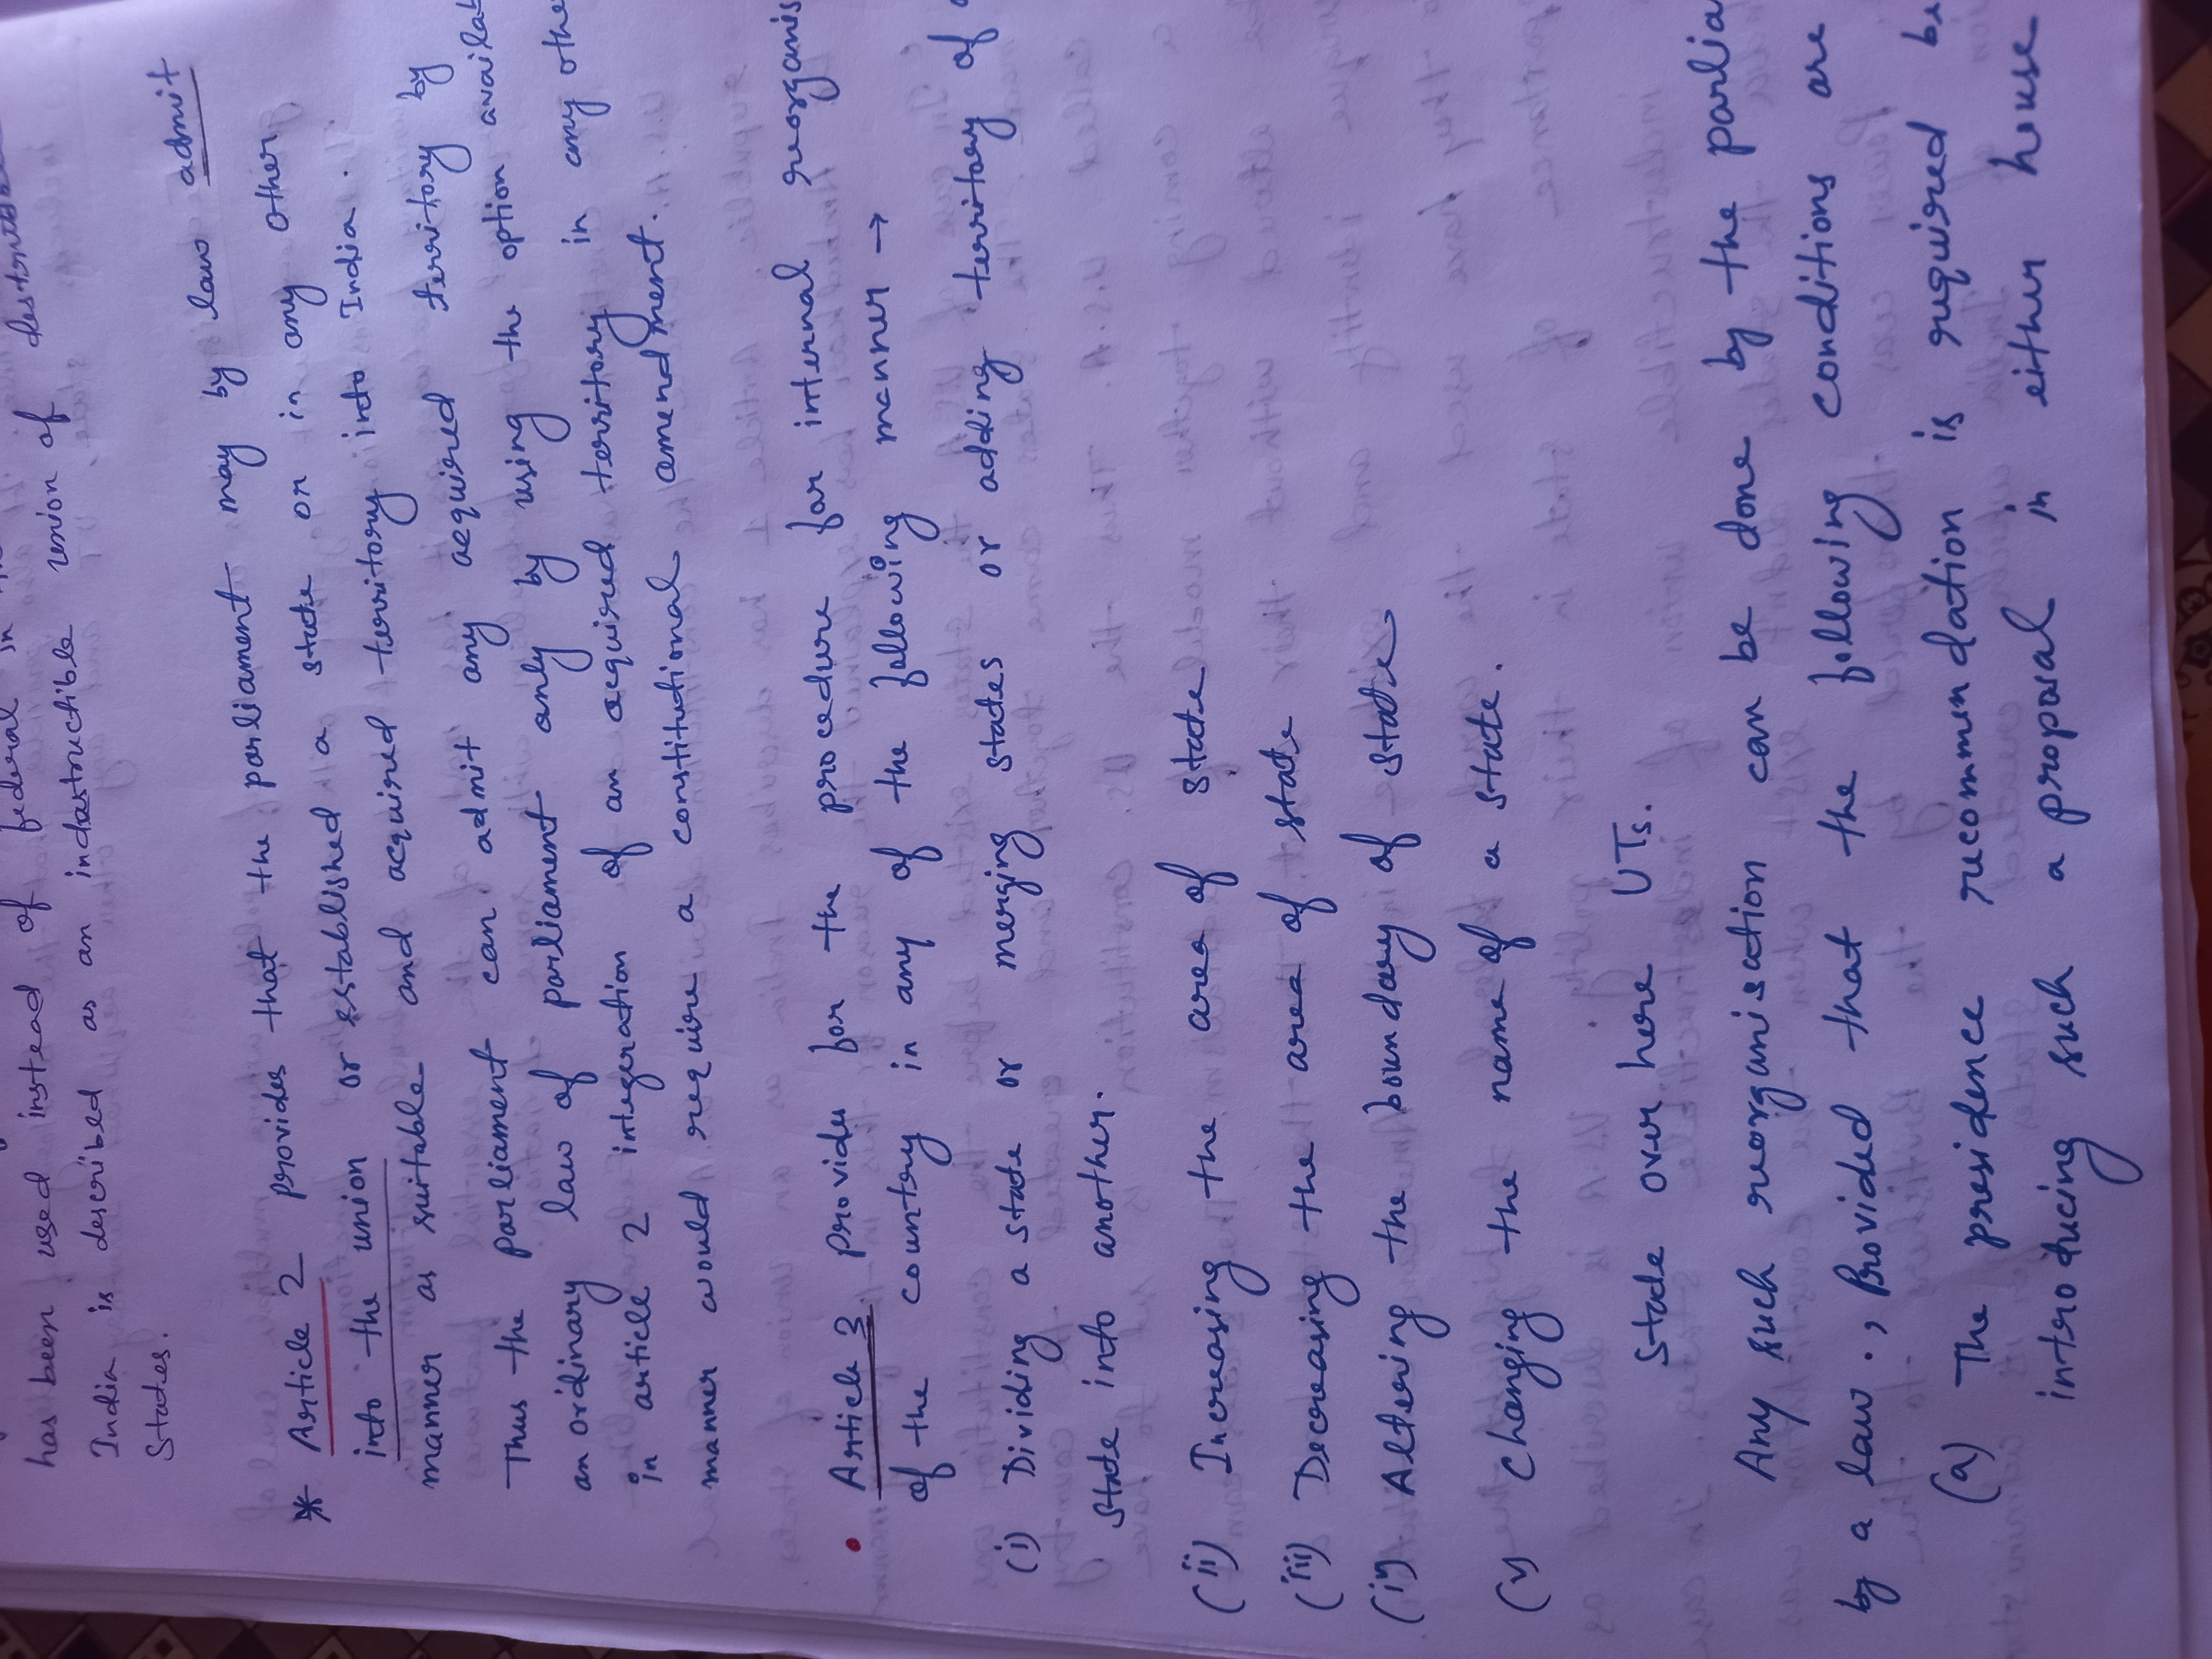 has been used instead of federal in
India is described as an indestructible union of destructible
States.
* Article 2 provides that the parliament may by law admit
into the union or established a state on in any other
manner as suitable and acquired territory into India.
Thus the parliament can admit any acquired territory by
an ordinary law of parliament only by using the option availab
in article 2 integeration of an acquired territory in any othe
manner would require a constitutional amendment.
• Article 3 provides for the procedure for internal reorganis
of the country in any of the following manner →
(i) Dividing a state or merging states or adding territory of
State into another.
(ii) Increasing the area of state
(iii) Decreasing the area of state
(iv) Altering the boundary of state
(v) Changing the name of a state.
State over here UTs.
Any such reorganisation can be done by the parlia
by a law., Provided that the following conditions are
(a) The presidence recommendation is required be
introducing such a proposal in either house